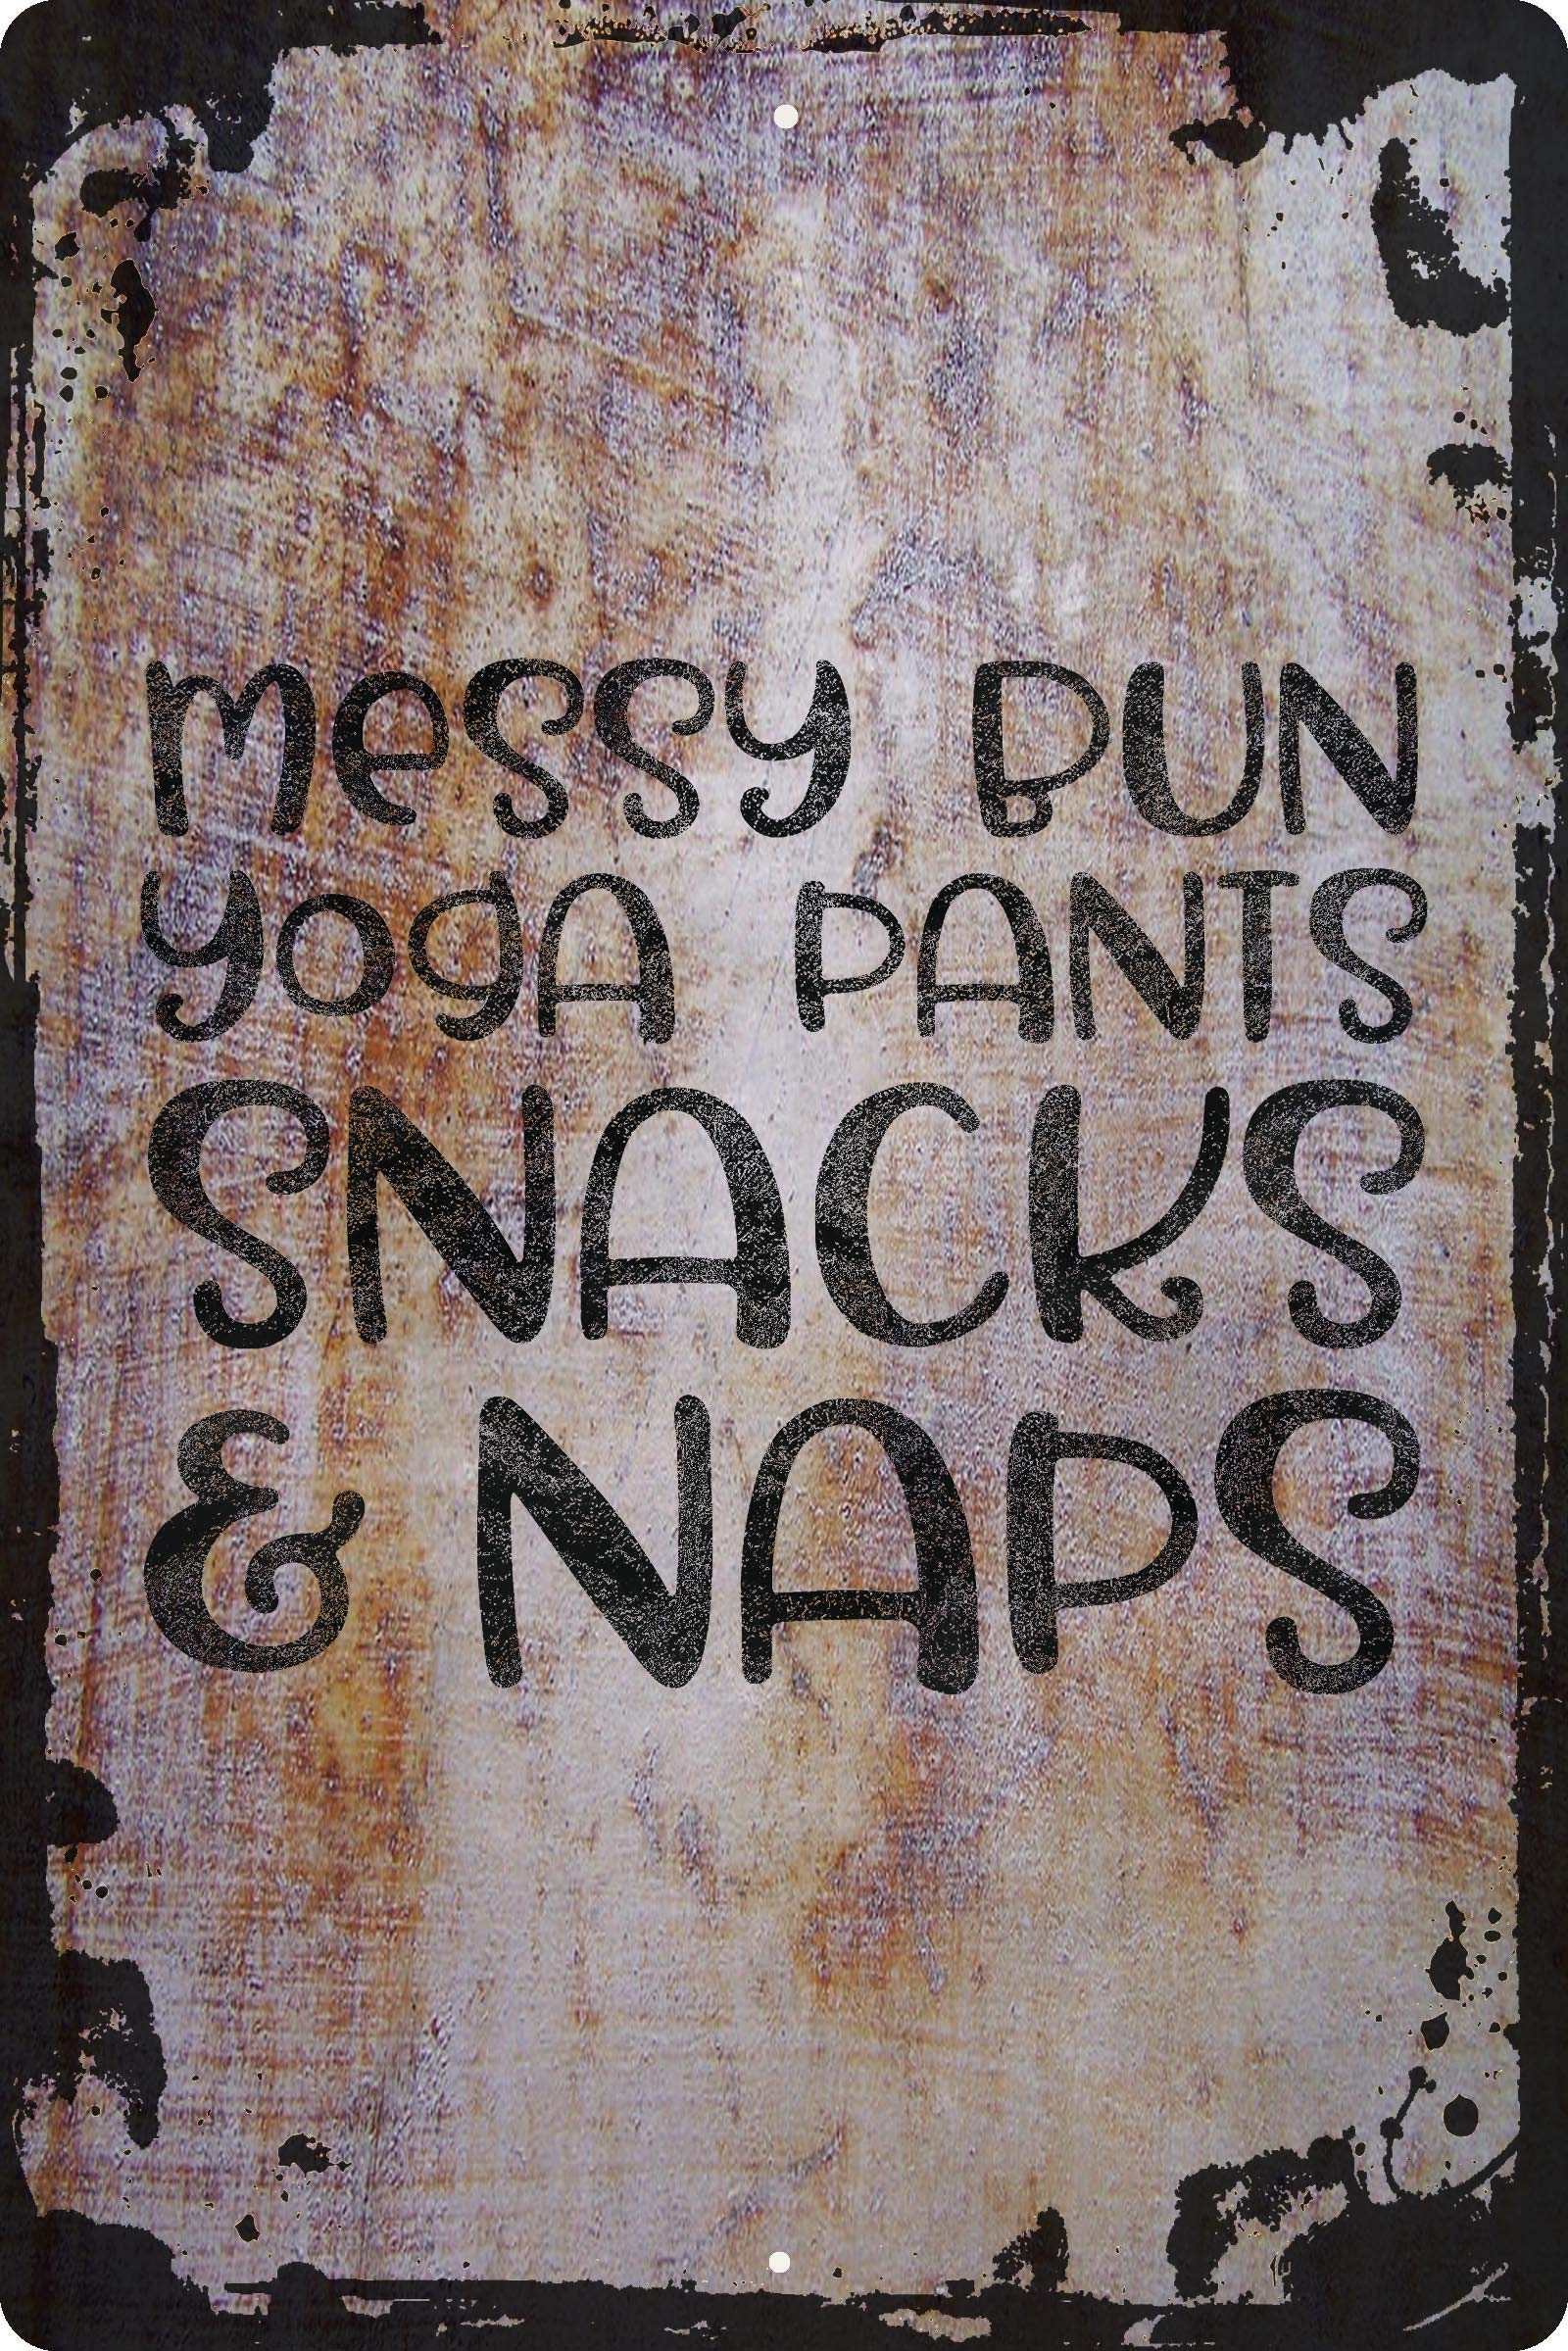 messy BUN
yogA PANTS
SNACKS
& NAPS